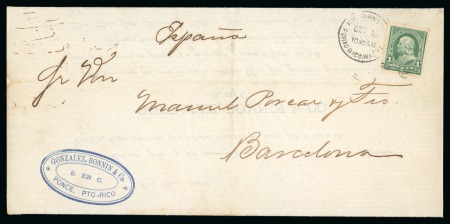 España
Sr Don
Manuel Porcar y Tio.
Barcelona
GONZALEZ, BONNIN & Co.
S. EN C.
PONCE, PTO-RICO